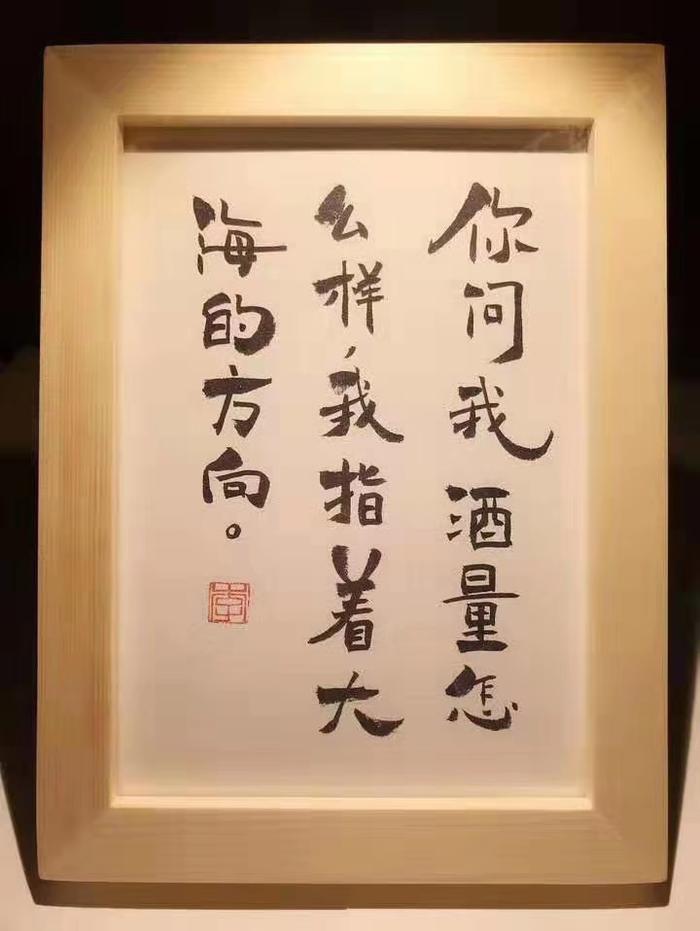 你问我酒量怎
么样，我指着大
海的方向。